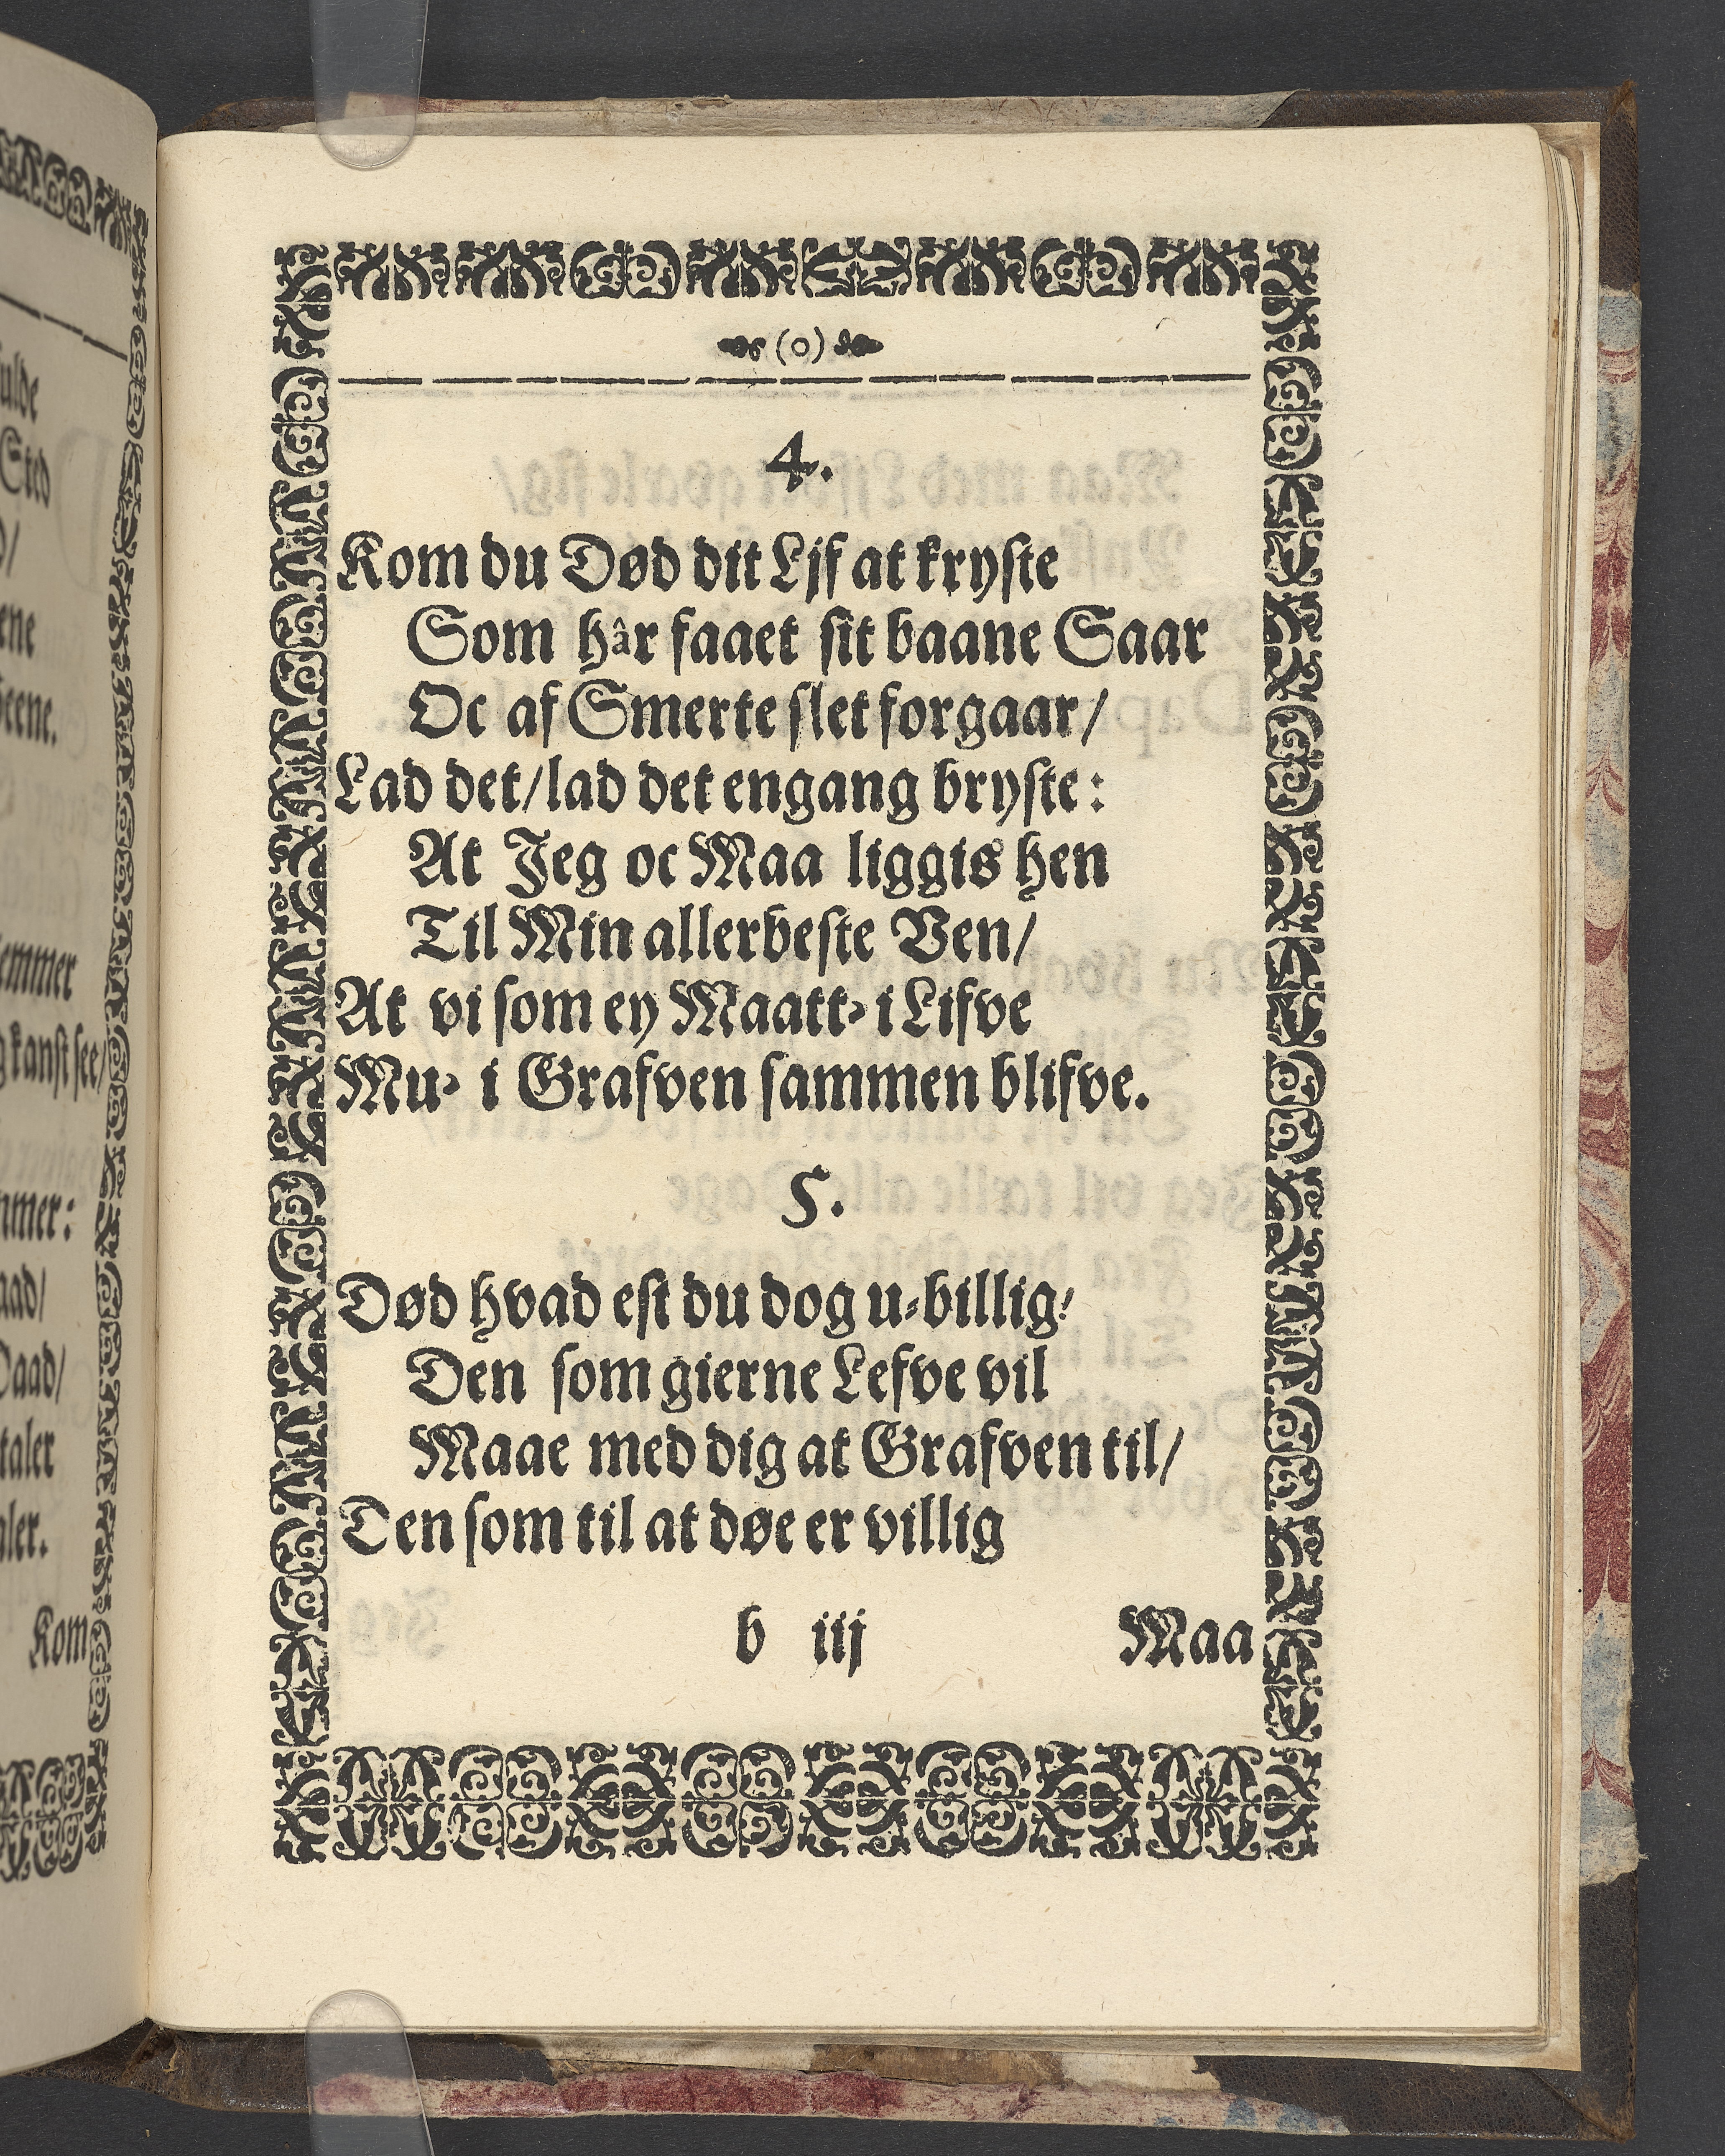 (o)
4.
Kom du Død dit Ljf at kryste
Som hâr faaet sit baane Saar
Oc af Smerte slet forgaar/
Lad det/lad det engang bryste:
At Jeg oc Maa liggis hen
Til Min allerbeste Ven/
At vi som ey Maatt⸗ i Lifve
Mu⸗ i Grafven sammen blifve.
5.
Død hvad est du dog u⸗billig/
Den som gierne Lefve vil
Maae med dig at Grafven til/
Den som til at døe er villig
b iij
Maa
Sted
kanst see/
Daad/
Kom